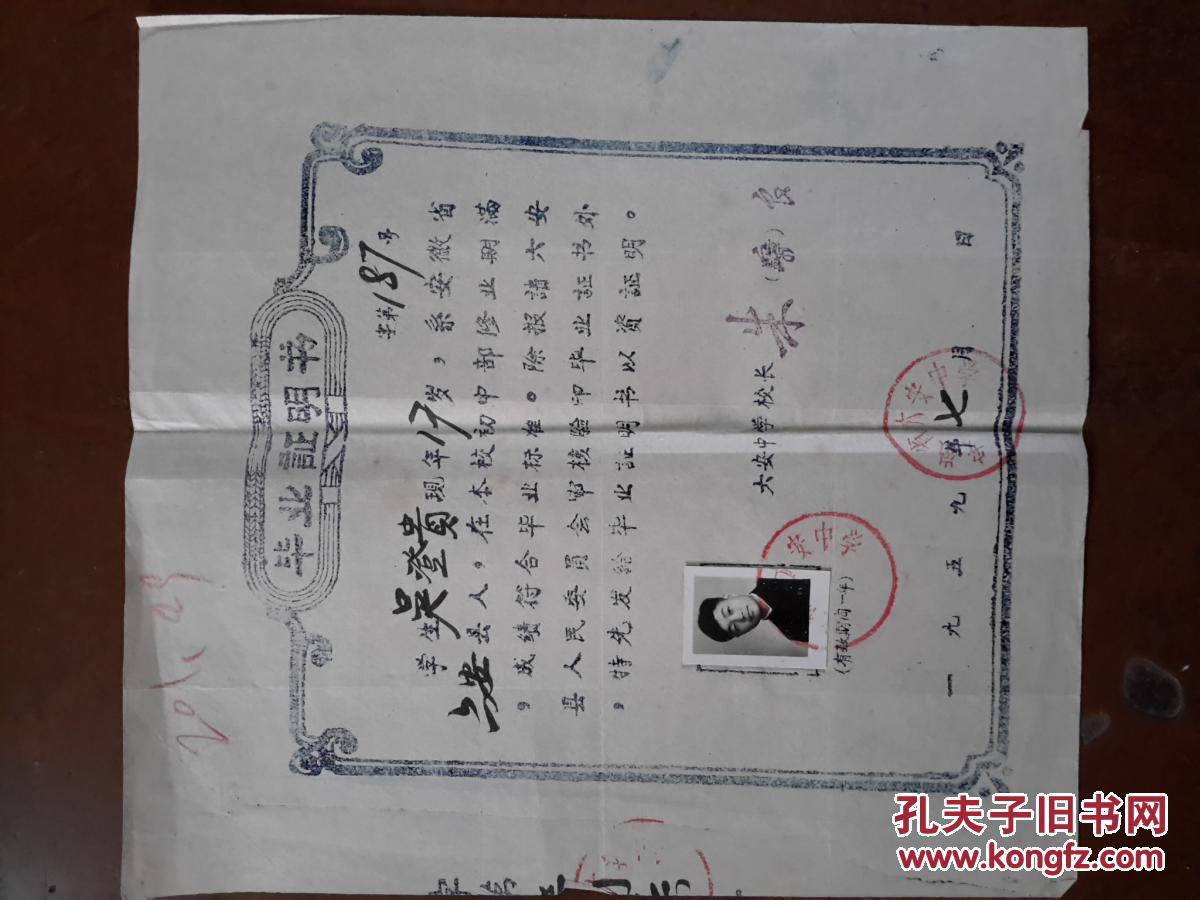 毕业证明书
字第187号
学生吴登贵现年17岁,系安徽省
六安县人,在本校初中部修业期满
,成绩符合毕业标准。除报请六安
县人民委员会审核验印毕业证书外
,特先发给毕业证明书以资证明。
六安中学校长 朱
(有效期间一年)
一九五九年七月 日
孔夫子旧书网
www.kongfz.com